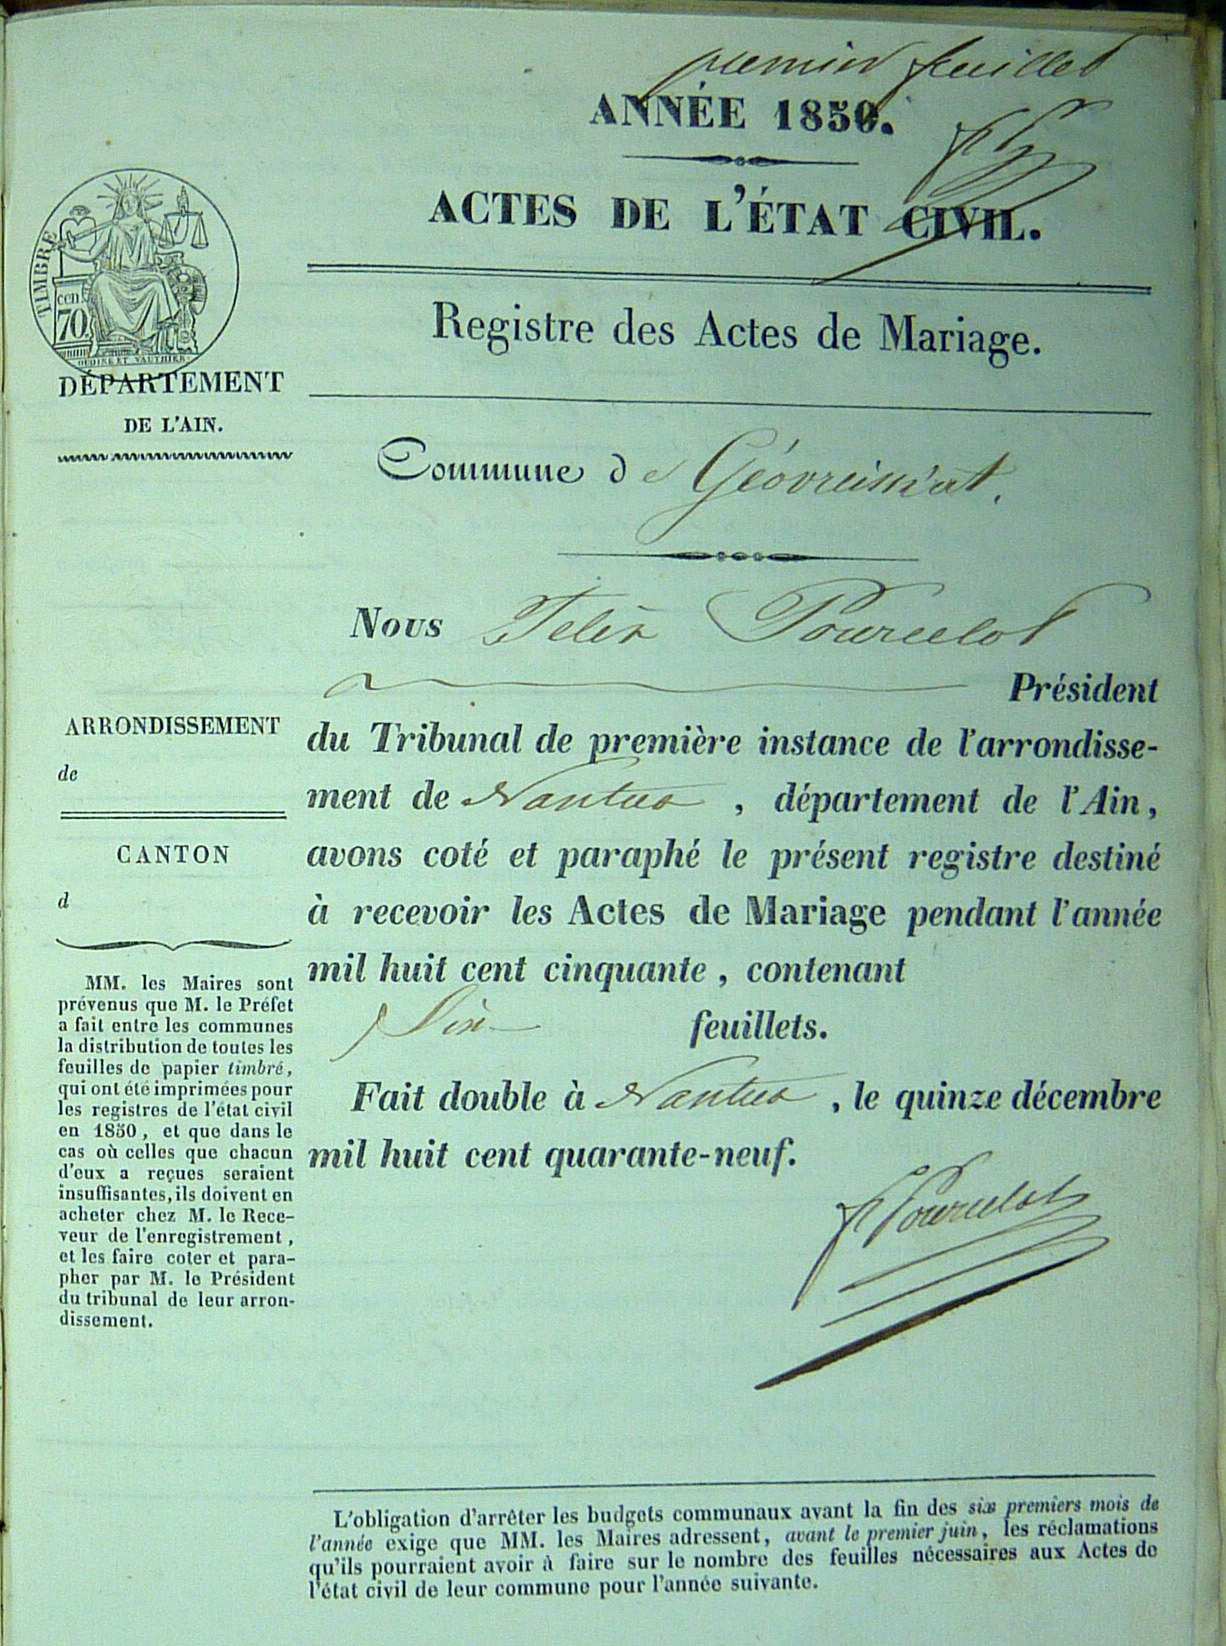 premier feuillet
ANNÉE 1850.
ACTES DE L'ÉTAT CIVIL.
Registre des Actes de Mariage.
TIMBRE
cen
70
OUDINÉ ET VAUTHIER
DÉPARTEMENT
DE L'AIN.
Commune de Géovreissiat.
Nous Felix Pourcelot
Président
du Tribunal de première instance de l'arrondisse-
ment de Nantua, département de l'Ain,
avons coté et paraphé le présent registre destiné
à recevoir les Actes de Mariage pendant l'année
mil huit cent cinquante, contenant
feuillets.
Fait double à Nantua, le quinze décembre
mil huit cent quarante-neuf.
F Pourcelot
ARRONDISSEMENT
de
CANTON
d
MM. les Maires sont
prévenus que M. le Préfet
a fait entre les communes
la distribution de toutes les
feuilles de papier timbré,
qui ont été imprimées pour
les registres de l'état civil
en 1850, et que dans le
cas où celles que chacun
d'eux a reçues seraient
insuffisantes, ils doivent en
acheter chez M. le Rece-
veur de l'enregistrement,
et les faire coter et para-
pher par M. le Président
du tribunal de leur arron-
dissement.
L'obligation d'arrêter les budgets communaux avant la fin des six premiers mois de
l'année exige que MM. les Maires adressent, avant le premier juin, les réclamations
qu'ils pourraient avoir à faire sur le nombre des feuilles nécessaires aux Actes de
l'état civil de leur commune pour l'année suivante.